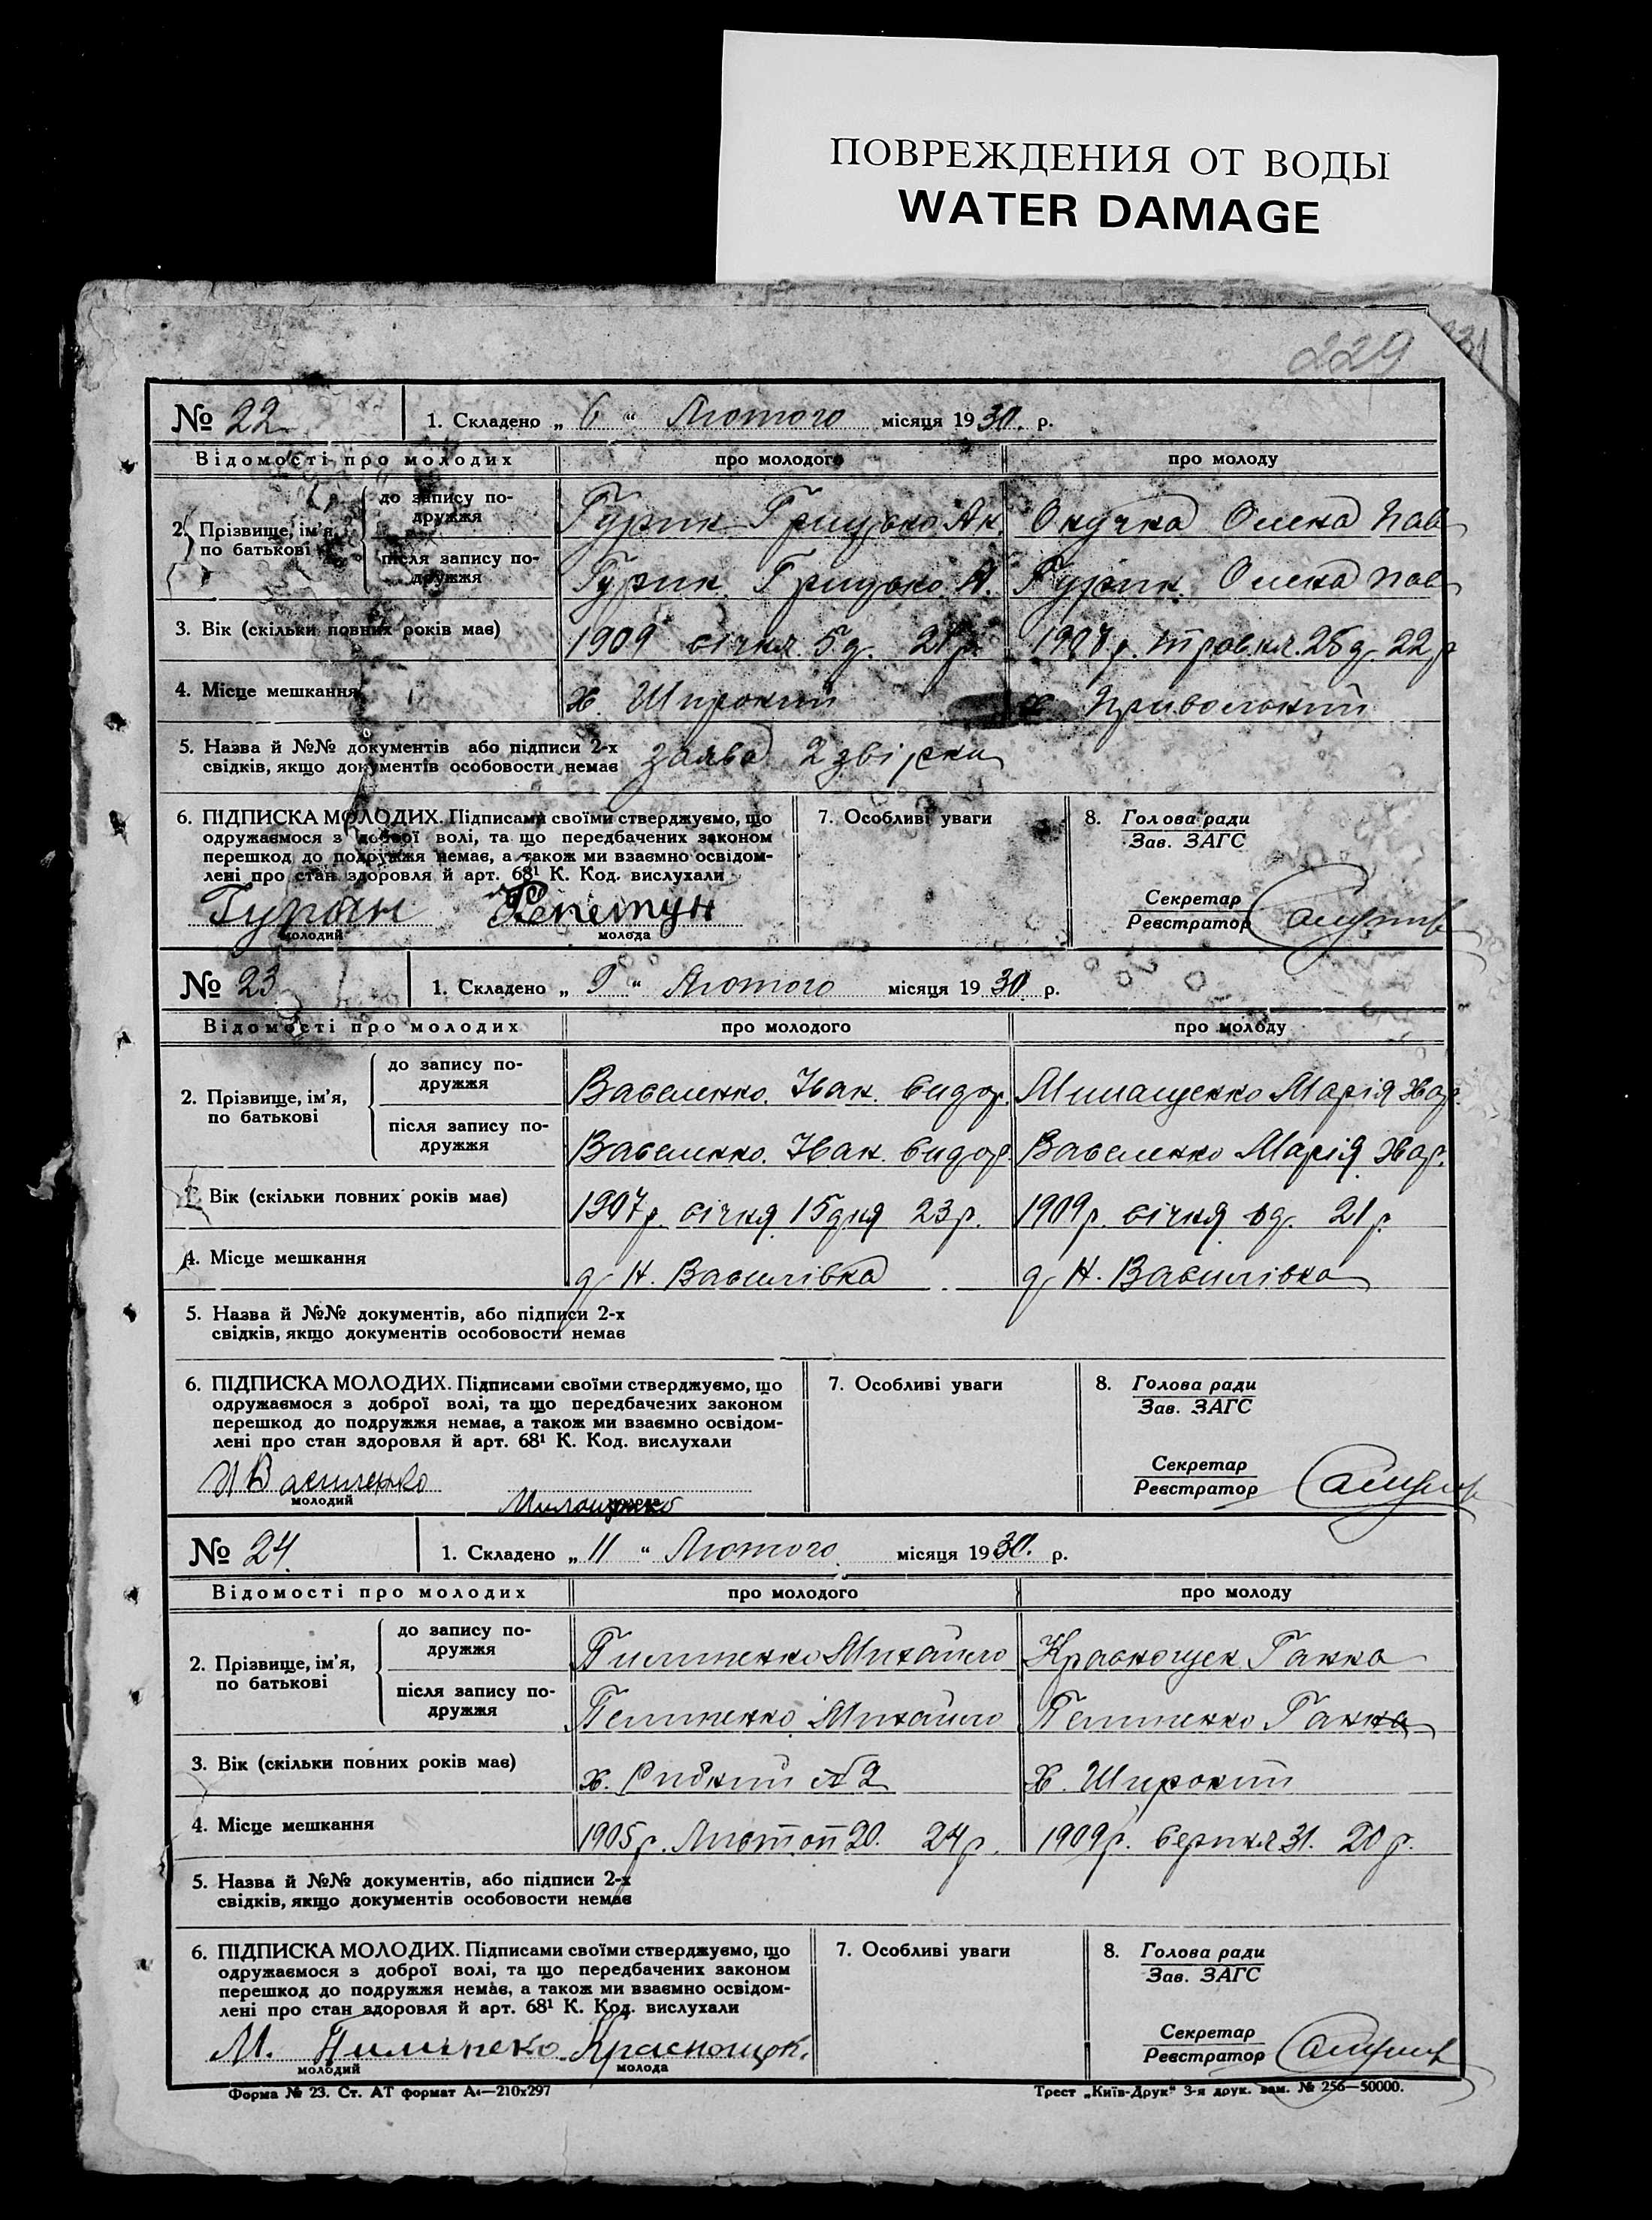 ПОВРЕЖДЕНИЯ ОТ ВОДЫ
WATER DAMAGE
229
№ 22. 1. Складено „ 6 “ Лютого місяця 1930. р.
Відомості про молодих про молодого про молоду
2. Прізвище, ім’я, по батькові
до запису подружжя Гурин Грицько Ак. Олена Пав
після запису подружжя Гурин. Грицько. А. Гурин. Олена Пав
3. Вік (скільки повних років має) 1909 січня. 5 д. 21 р. р. травня. 25 д. 22 р
4. Місце мешкання х. Широкий х Привольний
5. Назва й №№ документів або підписи 2-х
свідків, якщо документів особовости немає заява 2
6. ПІДПИСКА МОЛОДИХ. Підписами своїми стверджуємо, що 7. Особливі уваги 8. Голова ради
одружаємося з доброї волі, та що передбачених законом Зав. ЗАГС
перешкод до подружжя немає, а також ми взаємно освідом-
лені про стан здоровля й арт. 68¹ К. Код. вислухали
Секретар
Реєстратор
молодий молода
№ 23 1. Складено „ 9 “ Лютого місяця 1930 р.
Відомості про молодих про молодого про молоду
2. Прізвище, ім’я, по батькові
до запису подружжя Василенко. Іван. Сидор. Милащенко Марія Хвар.
після запису подружжя Василенко. Іван. Сидор. Василенко Марія Хвар.
3. Вік (скільки повних років має) 1907 р. січня 15 дня 23 р. 1909 р. січня д. 21 р.
4. Місце мешкання д Н. Василівка д Н. Василівка
5. Назва й №№ документів, або підписи 2-х
свідків, якщо документів особовости немає
6. ПІДПИСКА МОЛОДИХ. Підписами своїми стверджуємо, що 7. Особливі уваги 8. Голова ради
одружаємося з доброї волі, та що передбачених законом Зав. ЗАГС
перешкод до подружжя немає, а також ми взаємно освідом-
лені про стан здоровля й арт. 68¹ К. Код. вислухали
Секретар
Реєстратор
И Василенко Милащенко
молодий молода
№ 24. 1. Складено „ 11 “ Лютого. місяця 1930. р.
Відомості про молодих про молодого про молоду
2. Прізвище, ім’я, по батькові
до запису подружжя Пилипенко Михайло Ганна
після запису подружжя Пелипенко Михайло Пелипенко Ганна
3. Вік (скільки повних років має) х. № 2 х. Широкий
4. Місце мешкання 1905 р. Листоп 20. 24 р. 1909 р. серпня 31. 20 р.
5. Назва й №№ документів, або підписи 2-х
свідків, якщо документів особовости немає
6. ПІДПИСКА МОЛОДИХ. Підписами своїми стверджуємо, що 7. Особливі уваги 8. Голова ради
одружаємося з доброї волі, та що передбачених законом Зав. ЗАГС
перешкод до подружжя немає, а також ми взаємно освідом-
лені про стан здоровля й арт. 68¹ К. Код. вислухали
Секретар
Реєстратор
М.
молодий молода
Форма № 23. Ст. АТ формат А₄—210x297 Трест „Київ-Друк“ 3-я друк. зам. № 256—50000.